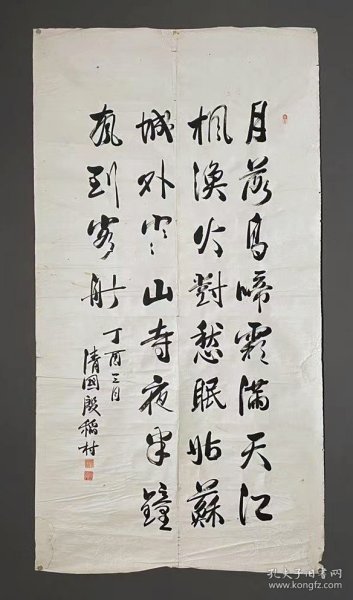 月落烏啼霜滿天江
楓漁火對愁眠姑蘇
城外寒山寺夜半鐘
聲到客船
丁酉三月
清國殷稻村
孔夫子旧书网
www.kongfz.com